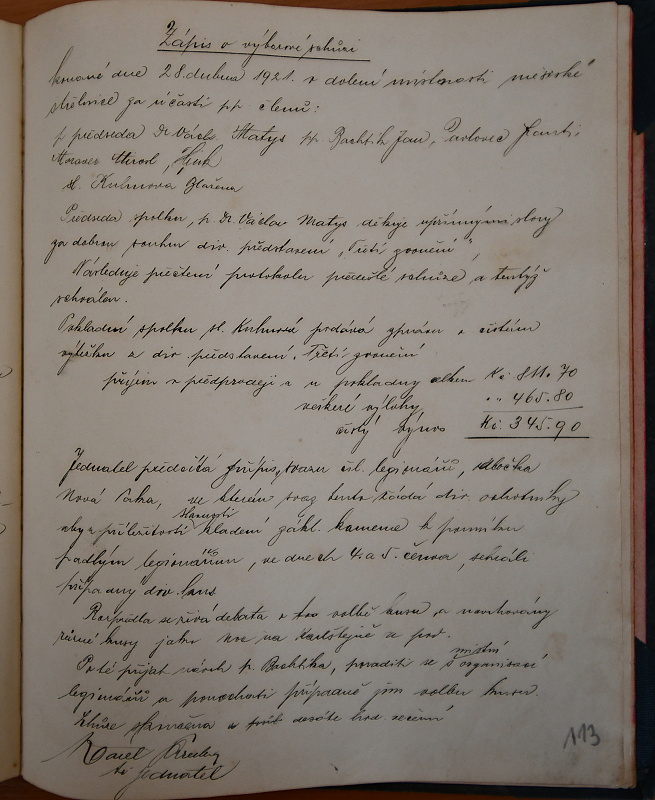 Zápis o výborové schůzi
konané dne 28. dubna 1921 v dolení místnosti městské
střelnice za účasti pp. členů:
p. předseda Dr. Václ. Matys pp. Bachtík Jan, Pavlovec Frant.,
Moravec Mirosl.,
sl. Kuhnova Blažena
Předseda spolku, p. Dr. Václav Matys děkuje upřímnými slovy
za dobrou souhru div. představení „Třetí zvonění",
Následuje přečtení protokolu předešlé schůze a tentýž
schválen.
Pokladní spolku sl. Kuhnová podává zprávu o čistém
výtěžku z div. představení „Třetí zvonění
příjem v předprodeji a u pokladny celkem Kč 811.70
veškeré výlohy „ „ 465.80
čistý výnos Kč. 345.90
Jednatel předčítá přípis, svazu čsl. legionářů, odbočka
Nová Paka, ve kterém svaz tento žádá div. ochotníky
aby u příležitosti slavnosti kladení zákl. kamene k pomníku
padlým legionářům, ve dnech 4. a 5. června, sehráli
případný div. kus
Rozpředla se živá debata o volbě kusu, a navrhovány
různé kusy jako Noc na Karlštejně a pod.
Poté přijat návrh p. Bachtíka, poraditi se s místní organisací
legionářů a ponechati případně jim volbu kusu.
Schůze skončena v desáté hod. večerní
Karel
t.č. jednatel
113